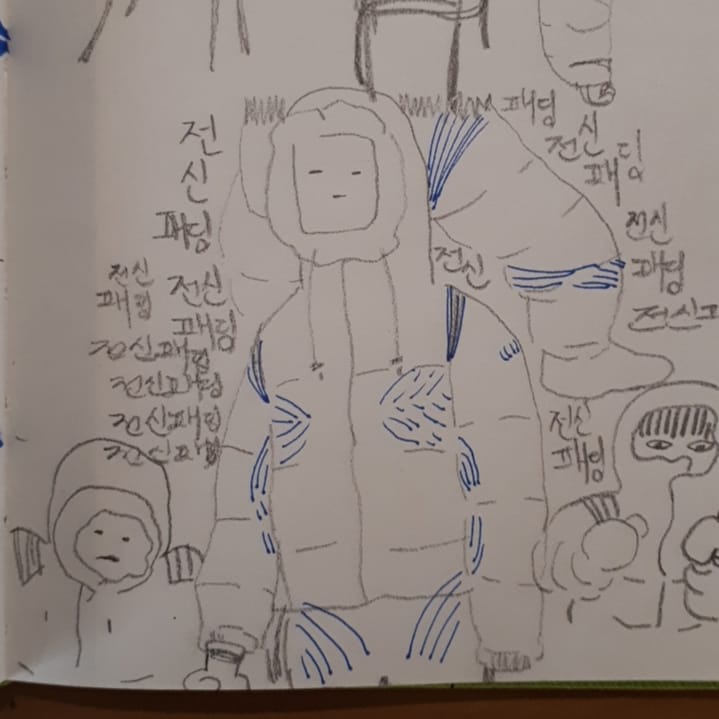 전
신
패딩
전신
패딩
전신
패딩
전신패딩
전신패딩
전신패딩
전신패딩
패딩
전신
패딩
전신
패딩
전신
전신
전신
패딩